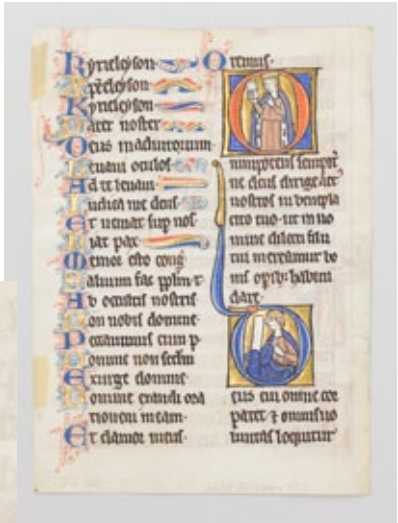 Kyrieleyson
Xpeleyson
Kyrieleyson
Pater noster
Deus in adiutorium
Levavi oculos
Ad te levavi
Iudica me deus
Et veniat sup nos
Fiat pax
Memor esto cong
Salvum fac pplm t
D occultis nostris
Non nobis domine
Peccavimus cum p
Domine non sedm
Exurge domine
Domine exaudi ora
tionem meam
Et clamor meus
Oremus
Omnipotens sempit
ne deus dirige act
nostros in benepla
cito tuo ut in no
mine dilecti filii
tui mereamur bo
nis opib habun
dare
Deus cui omne cor
patet et omnis vo
luntas loquitur